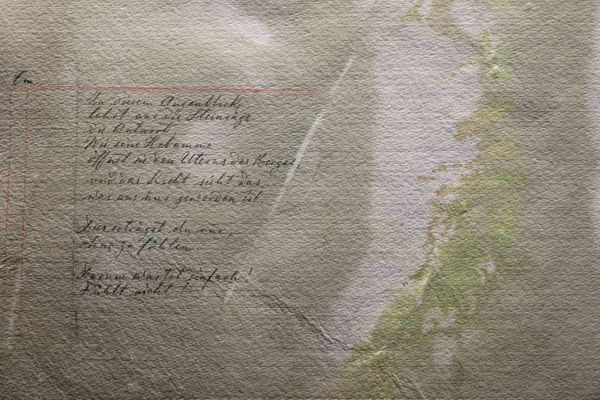 In diesem Augenblicke
lehrt uns die Steinsäge
die Antwort
Wie eine Hebamme
öffnet sie den Uterus des Berges,
und das Licht sieht das
was aus uns geworden ist
erträgst du nur,
ohne zu fühlen
Darum wartet einfach!
Fühlt nicht!